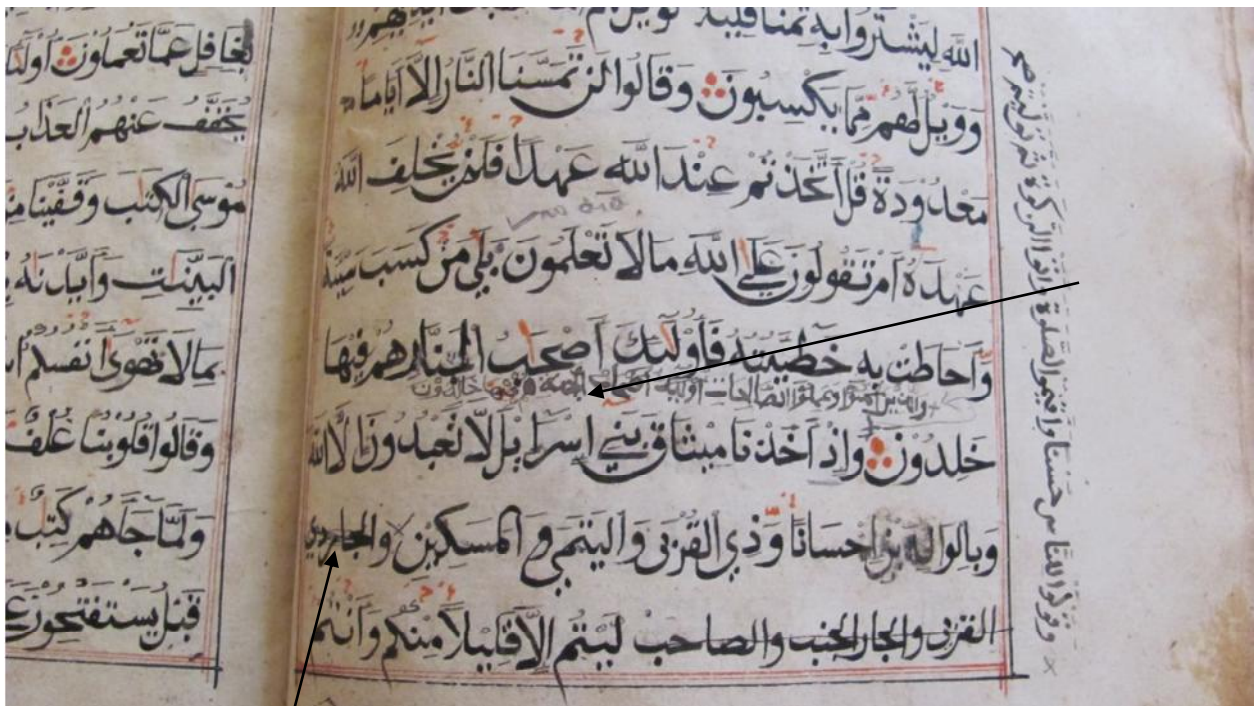 الله ليشتروا به ثمنا قليلا فويل لهم ايديهم
وَوَيْلٌ لَهُمْ مِّمَّا يَكْسِبُونَ وَقَالُوا لَنْ تَمَسَّنَا النَّارُ إِلَّا أَيَّامًا
مَعْدُودَةً قُلْ أَتَّخَذْتُمْ عِنْدَ اللَّهِ عَهْدًا فَلَنْ يُخْلِفَ اللَّهُ
عَهْدَهُ أَمْ تَقُولُونَ عَلَى اللَّهِ مَا لَا تَعْلَمُونَ بَلَى مَنْ كَسَبَ سَيِّئَةً
وَّأَحَاطَتْ بِهِ خَطِيئَتُهُ فَأُولَئِكَ أَصْحَابُ النَّارِ هُمْ فِيهَا
والذين آمنوا وعملوا الصالحات أولئك أصحاب الجنة هم فيها خالدون
خٰلِدُوْنَ وَإِذْ أَخَذْنَا مِيثَاقَ بَنِي إِسْرَائِيلَ لَا تَعْبُدُونَ إِلَّا اللَّهَ
وَبِالْوَالِدَيْنِ إِحْسَانًا وَّذِي الْقُرْبَى وَالْيَتٰمٰى وَالْمَسٰكِيْنِ والجار ذي
القربى والجار الجنب والصاحب لَيْتُمْ إِلَّا قَلِيلًا مِنْكُمْ وَأَنْتُمْ
وقولوا للناس حسنا واقيموا الصلوة واتوا الزكوة ثم توليتم
بِغَافِلٍ عَمَّا تَعْمَلُونَ
يُخَفَّفُ عَنْهُمُ الْعَذَابُ
مُوْسَى الْكِتٰبَ وَقَفَّيْنَا
الْبَيِّنٰتِ وَأَيَّدْنٰهُ
بِمَا لَا تَهْوٰى أَنْفُسُكُمُ
وَقَالُوا قُلُوبُنَا غُلْفٌ
وَلَمَّا جَآءَهُمْ كِتٰبٌ
قَبْلُ يَسْتَفْتِحُوْنَ